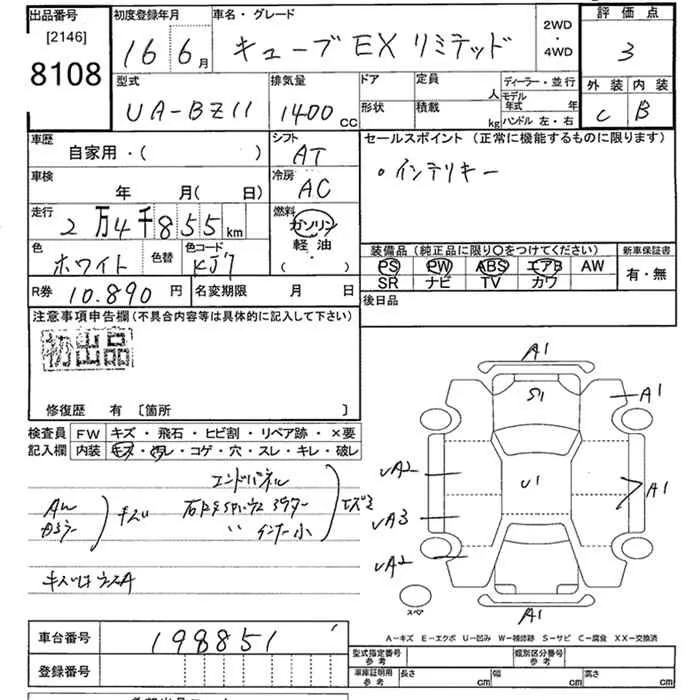 出品番号
[2146]
8108
初度登録年月
16 6月
車名・グレード
キューブ EX リミテッド
2WD
・
4WD
評価点
3
外装 内装
C B
型式
UA-BZ11
排気量
1400 CC
ドア
形状
定員 人
積載 kg
ディーラー・並行
モデル年式 年
ハンドル 左・右
車歴
自家用・( )
シフト
AT
車検
年 月( 日)
冷房
AC
走行
2万4千855km
燃料
ガソリン
軽油
・
( )
色
ホワイト
色替
色コード
R券 10.890 円
名変期限 月 日
セールスポイント (正常に機能するものに限ります)
・インテリキー
装備品(純正品に限り○をつけてください)
PS PW ABS エアB AW
SR ナビ TV カワ
新車保証書
有・無
後日品
注意事項申告欄(不具合内容等は具体的に記入して下さい)
初出品
修復歴 有 [箇所 ]
検査員記入欄
FW キズ・飛石・ヒビ割・リペア跡・×要
内装 キズ・汚レ・コゲ・穴・スレ・キレ・破レ
エンドパネル
キズ
A1
S1
A1
UA2
U1
A1
UA3
UA2
A1
スペア
A-キズ E-エクボ U-凹み W-補修跡 S-サビ C-腐食 XX-交換済
車台番号
198851
登録番号
型式指定番号
参考
類別区分番号
参考
車庫証明用
参考
長さ cm
幅 cm
高さ cm